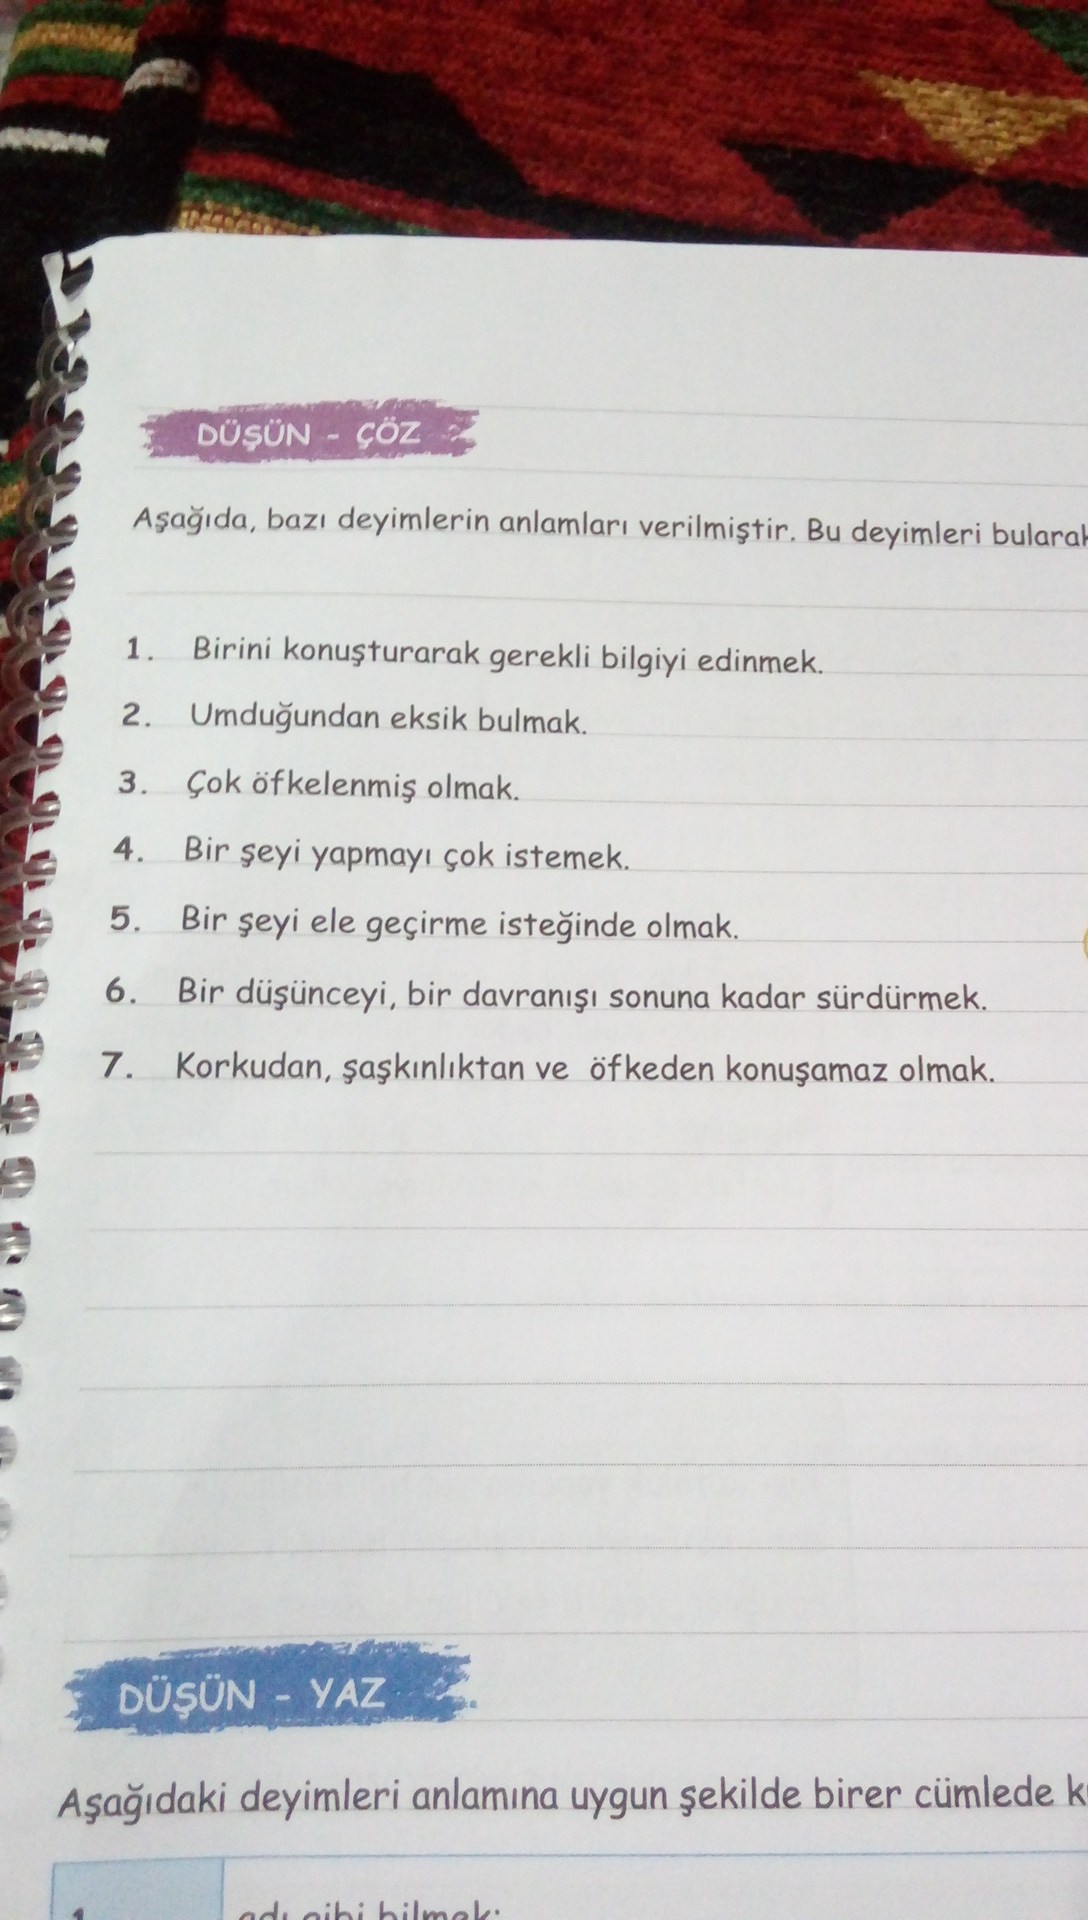 DÜŞÜN - ÇÖZ
Aşağıda, bazı deyimlerin anlamları verilmiştir. Bu deyimleri bularak
1. Birini konuşturarak gerekli bilgiyi edinmek.
2. Umduğundan eksik bulmak.
3. Çok öfkelenmiş olmak.
4. Bir şeyi yapmayı çok istemek.
5. Bir şeyi ele geçirme isteğinde olmak.
6. Bir düşünceyi, bir davranışı sonuna kadar sürdürmek.
7. Korkudan, şaşkınlıktan ve öfkeden konuşamaz olmak.
DÜŞÜN - YAZ
Aşağıdaki deyimleri anlamına uygun şekilde birer cümlede
1. adı gibi bilmek: